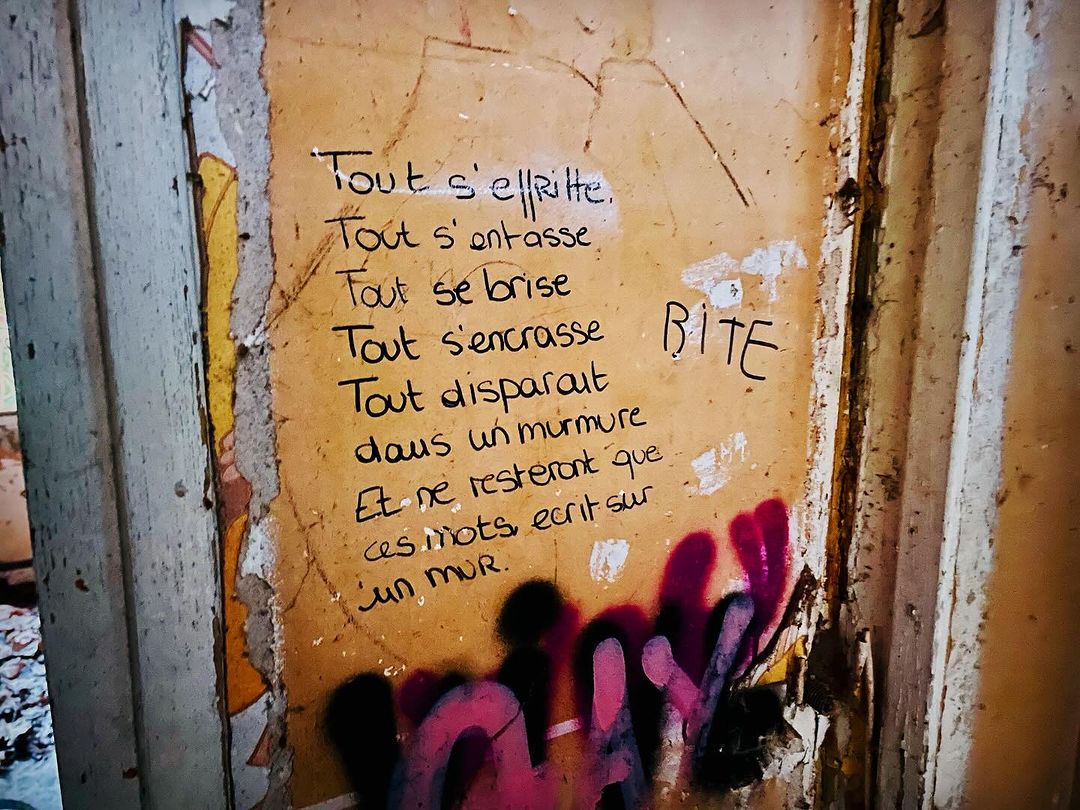 Tout s'effritte.
Tout s'entasse
Tout se brise
Tout s'encrasse
Tout disparait
dans un murmure
Et ne resteront que
ces mots, ecrit sur
un mur.
BITE